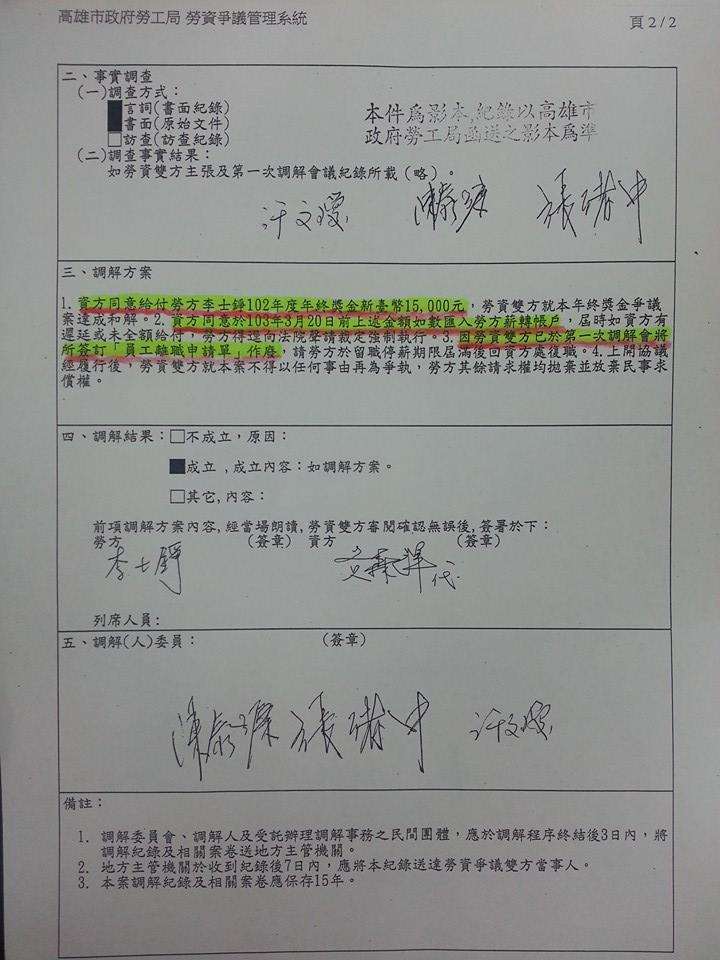 高雄市政府勞工局 勞資爭議管理系統
頁 2 / 2
二、事實調查
(一)調查方式：
■言詞(書面紀錄)
■書面(原始文件)
□訪查(訪查紀錄)
本件為影本,紀錄以高雄市
政府勞工局函送之影本為準
(二)調查事實結果：
如勞資雙方主張及第一次調解會議紀錄所載（略）。
張
三、調解方案
1.資方同意給付勞方李士錚102年度年終獎金新臺幣15,000元，勞資雙方就本年終獎金爭議
案達成和解。2.資方同意於103年3月20日前上述金額如數匯入勞方薪轉帳戶，屆時如資方有
遲延或未全額給付，勞方得逕向法院聲請裁定強制執行。3.因勞資雙方已於第一次調解會將
所簽訂「員工離職申請單」作廢，請勞方於留職停薪期限屆滿後回資方處復職。4.上開協議
經履行後，勞資雙方就本案不得以任何事由再為爭執，勞方其餘請求權均拋棄並放棄民事求
償權。
四、調解結果：□不成立，原因：
■成立 ,成立內容：如調解方案。
□其它,內容：
前項調解方案內容,經當場朗讀,勞資雙方審閱確認無誤後,簽署於下：
勞方 (簽章) 資方 (簽章)
李士錚
代
列席人員：
五、調解(人)委員： (簽章)
張
備註：
1. 調解委員會、調解人及受託辦理調解事務之民間團體，應於調解程序終結後3日內，將
調解紀錄及相關案卷送地方主管機關。
2. 地方主管機關於收到紀錄後7日內，應將本紀錄送達勞資爭議雙方當事人。
3. 本案調解紀錄及相關案卷應保存15年。